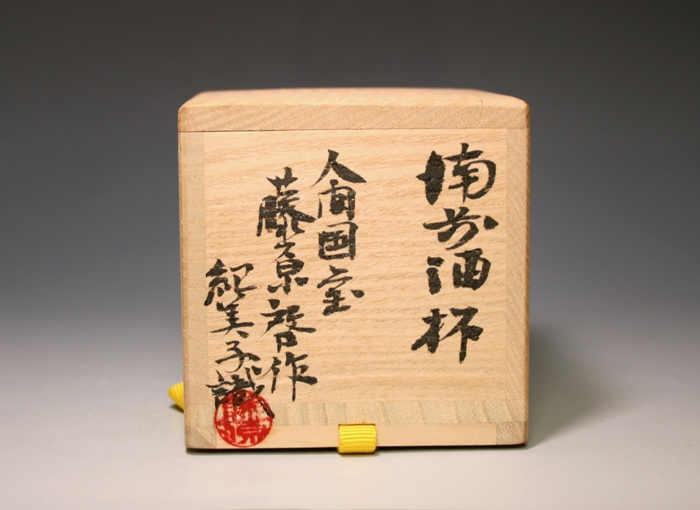 備前酒杯
人間国宝
藤原啓作
紀美子識